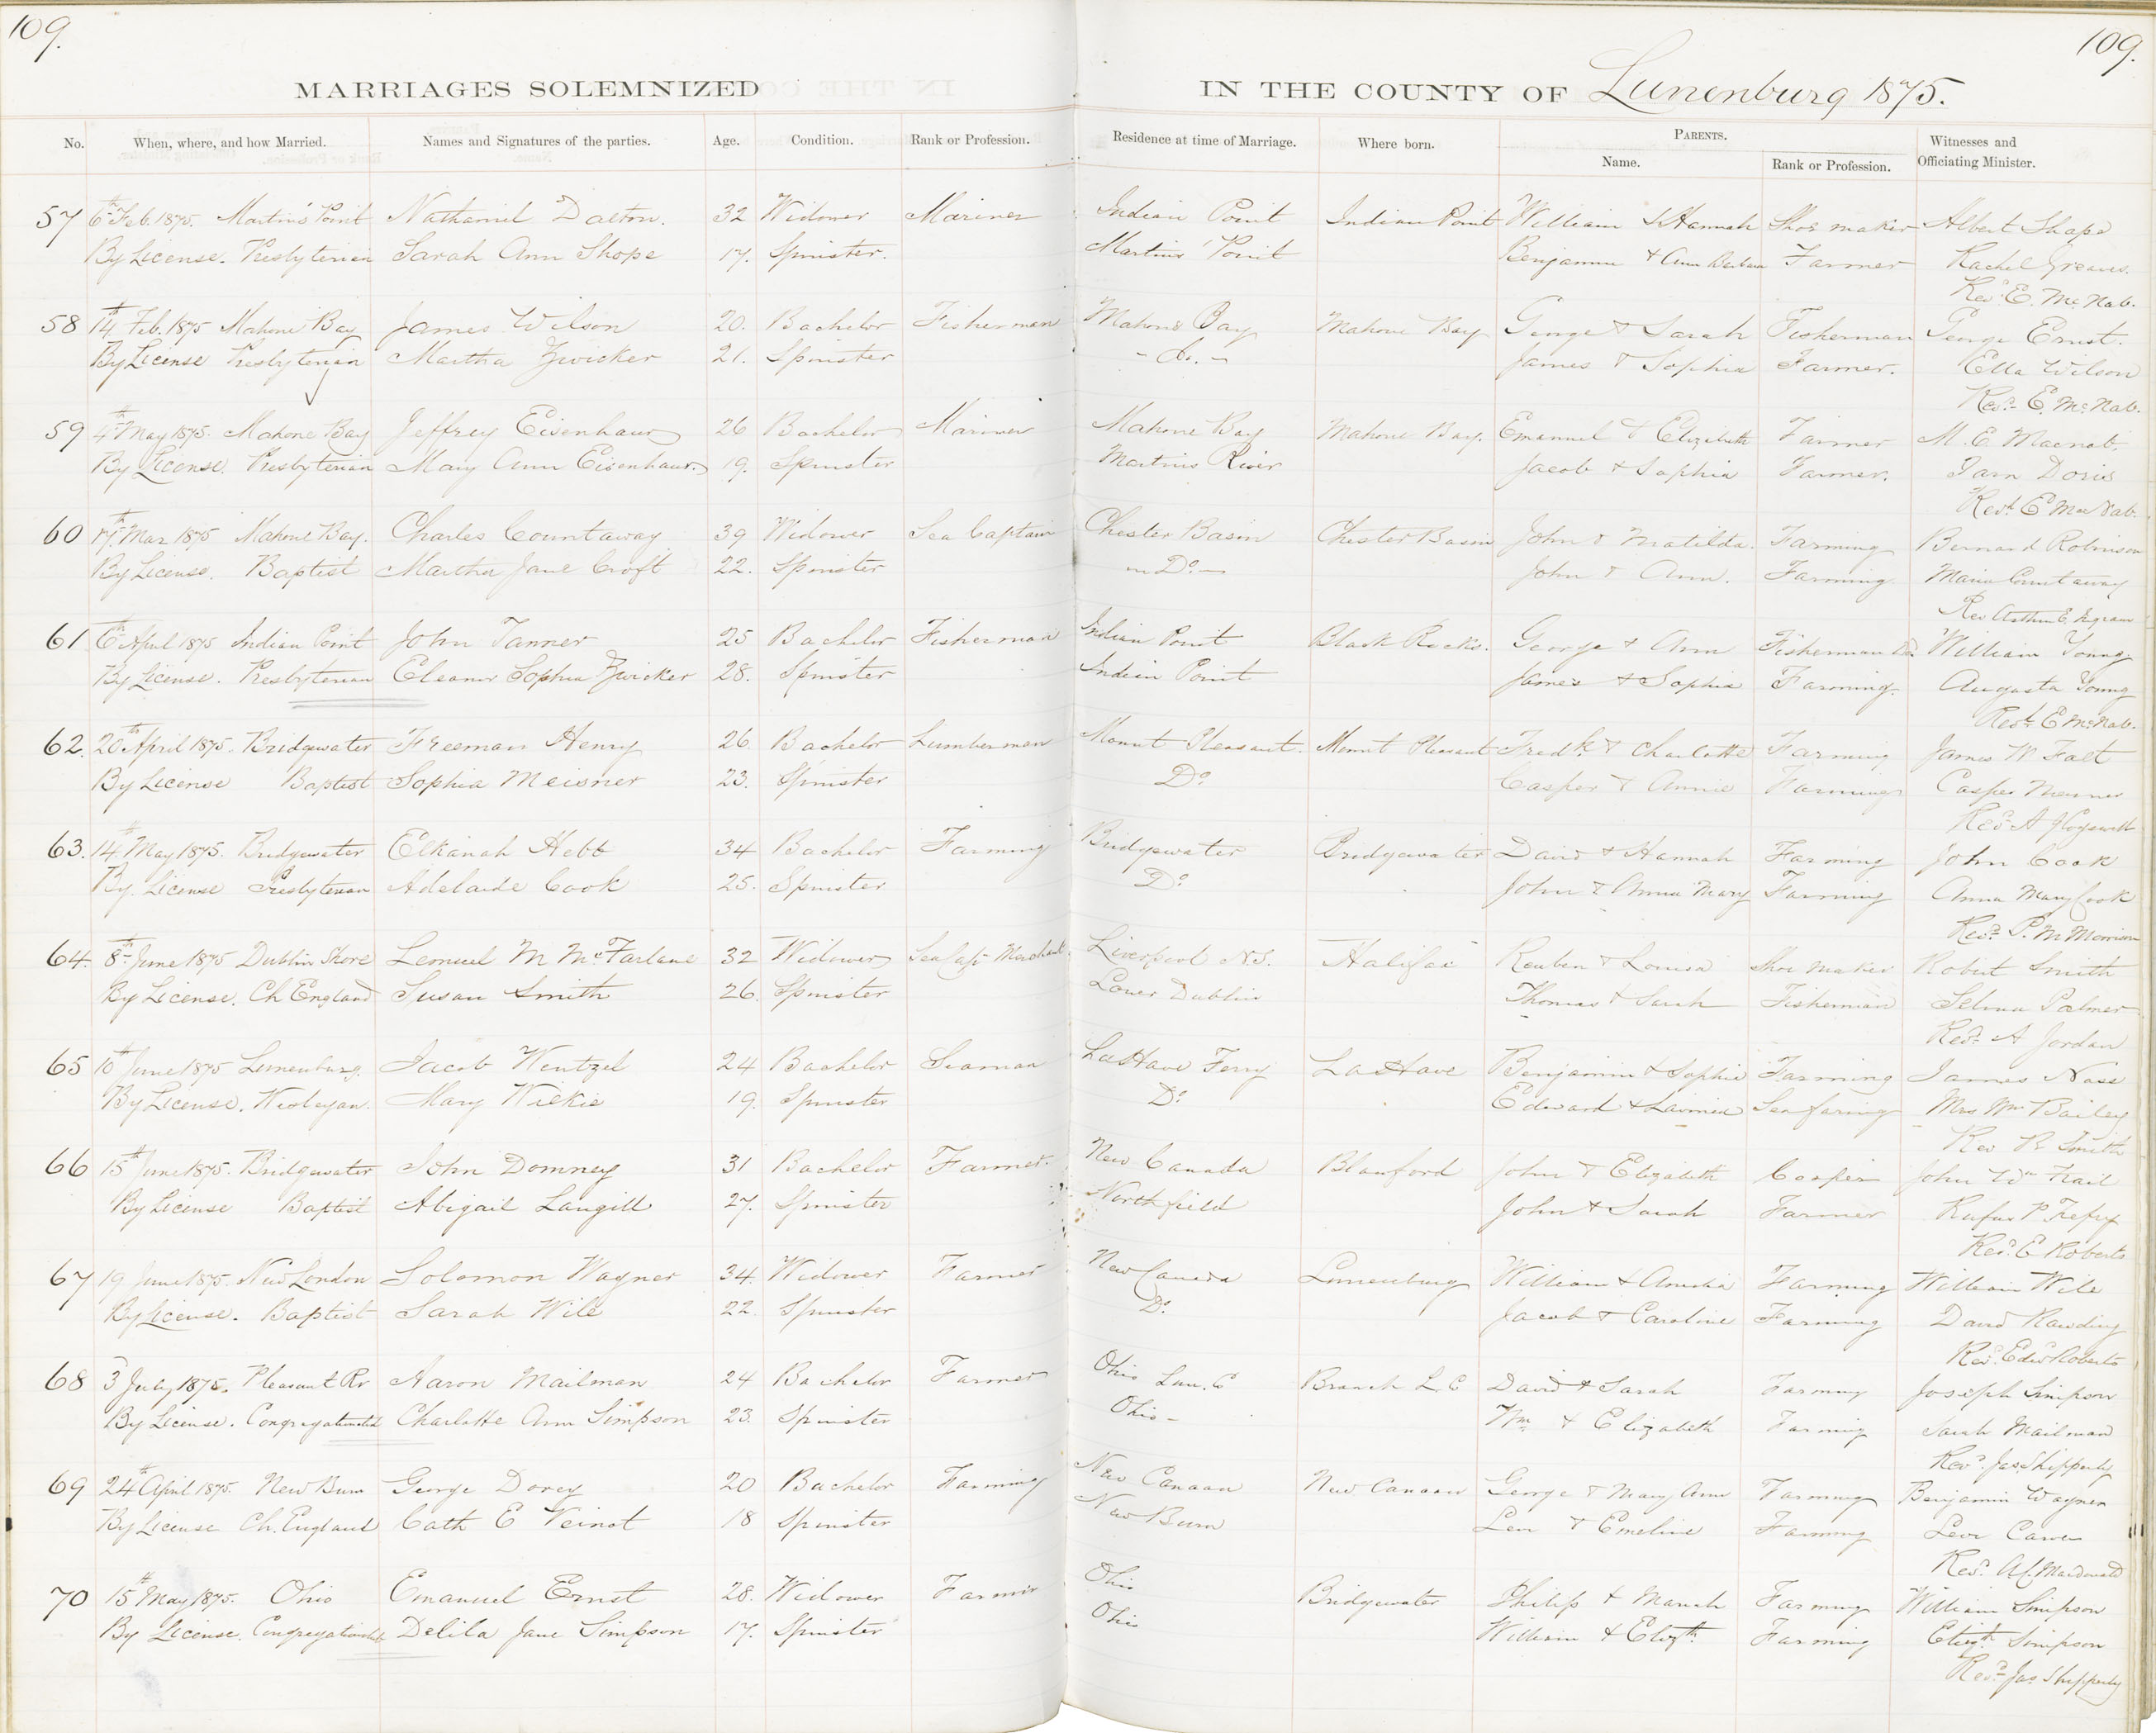 109.
109.
MARRIAGES SOLEMNIZED
IN THE COUNTY OF Lunenburg 1875.
No. When, where, and how Married. Names and Signatures of the parties. Age. Condition. Rank or Profession. Residence at time of Marriage. Where born. PARENTS. Name. Rank or Profession. Witnesses and Officiating Minister.
57 6th Feb. 1875. Martins Point Nathaniel Dalton. 32 Widower Mariner Indian Point Indian Point William & Hannah Shoe maker Albert Shape
By License. Presbyterian Sarah Ann Shope 17. Spinster. Martins Point Benjamin & Ann Farmer Rachel Greaves.
Revd E. McNab.
58 14th Feb. 1875 Mahone Bay James Wilson 20. Bachelor Fisherman Mahone Bay Mahone Bay George & Sarah Fisherman George Ernst.
By License Presbyterian Martha Zwicker 21. Spinster - do. - James & Sophia Farmer. Ella Wilson
Revd E. McNab.
59 4th May 1875. Mahone Bay Jeffrey Eisenhaur 26 Bachelor Mariner Mahone Bay Mahone Bay. Emanuel & Elizabeth Farmer M. E. Macnab.
By License. Presbyterian Mary Ann Eisenhaur. 19. Spinster Martins River Jacob & Sophia Farmer. Doris
Revd E MacNab.
60 17th Mar 1875 Mahone Bay. Charles Countaway 39 Widower Sea Captain Chester Basin Chester Basin John & Matilda. Farming Bernard Robinson
By License. Baptist Martha Jane Croft 22. Spinster Do John & Ann. Farming Maria Countaway
Rev Arthur E.
61 6th April 1875 Indian Point John Tanner 25 Bachelor Fisherman Indian Point Black Rocks. George & Ann Fisherman William Young
By License. Presbyterian Eleanor Sophia Zwicker 28. Spinster Indian Point James & Sophia Farming. Augusta Young
Revd E McNab.
62. 20th April 1875. Bridgewater Freeman Henry 26 Bachelor Lumberman Mount Pleasant. Mount Pleasant Fredk. & Charlotte Farming James W Falt
By License Baptist Sophia Meisner 23. Spinster Do Casper & Annie Farming Casper Meisner
Revd A J Cogswell
63. 14th May 1875. Bridgewater Elkanah Hebb 34 Bachelor Farming Bridgewater Bridgewater David & Hannah Farming John Cook
By License Presbyterian Adelaide Cook 25. Spinster Do John & Anna Mary Farming Anna Mary Cook
Revd P. M Morrison
64. 8th June 1875 Dublin Shore Lemuel M McFarlane 32 Widower Sea Capt Merchant Liverpool N.S. Halifax Reuben & Louisa Shoe Maker Robert Smith
By License. Ch England Susan Smith 26. Spinster Lower Dublin Thomas & Sarah Fisherman Selma Palmer
Revd A Jordan
65 10th June 1875 Lunenburg. Jacob Wentzel 24 Bachelor Seaman LaHave Ferry LaHave Benjamin & Sophia Farming James Nass
By License. Wesleyan. Mary Wilkie 19. Spinster Do Edward & Lavinia Seafaring Mrs Wm Bailey
Rev R Smith
66 15th June 1875. Bridgewater John Domney 31 Bachelor Farmer. New Canada Blanford John & Elizabeth Cooper John Wm Frail
By License Baptist Abigail Langill 27. Spinster Northfield John & Sarah Farmer Rufus P Trefry
Revd E Roberts
67 19 June 1875. New London Solomon Wagner 34. Widower Farmer New Canada Lunenburg William & Amelia Farming William Wile
By License. Baptist Sarah Wile 22. Spinster Do Jacob & Caroline Farming David Rawding
Revd Edwd Roberts
68 3 July 1875. Pleasant Rv Aaron Mailman 24 Bachelor Farmer Ohio Lun. C Branch L. C David & Sarah Farming Joseph Simpson
By License. Congregationalist Charlotte Ann Simpson 23. Spinster Ohio - Wm & Elizabeth Farming Sarah Mailman
Revd Jas. Shipperly
69 24th April 1875. New Burn George Dorey 20 Bachelor Farming New Canaan New Canaan George & Mary Ann Farming Benjamin Wagner
By License Ch. England Cath E Veinot 18 Spinster New Burn Levi & Emeline Farming Levi
Revd MacDonald
70 15th May 1875. Ohio Emanuel Ernst 28. Widower Farmer Ohio Bridgewater Philip & Farming William Simpson
By License. Congregationalist Delila Jane Simpson 17. Spinster Ohio William & Elizth Farming Elizth Simpson
Revd Jas Shipperly